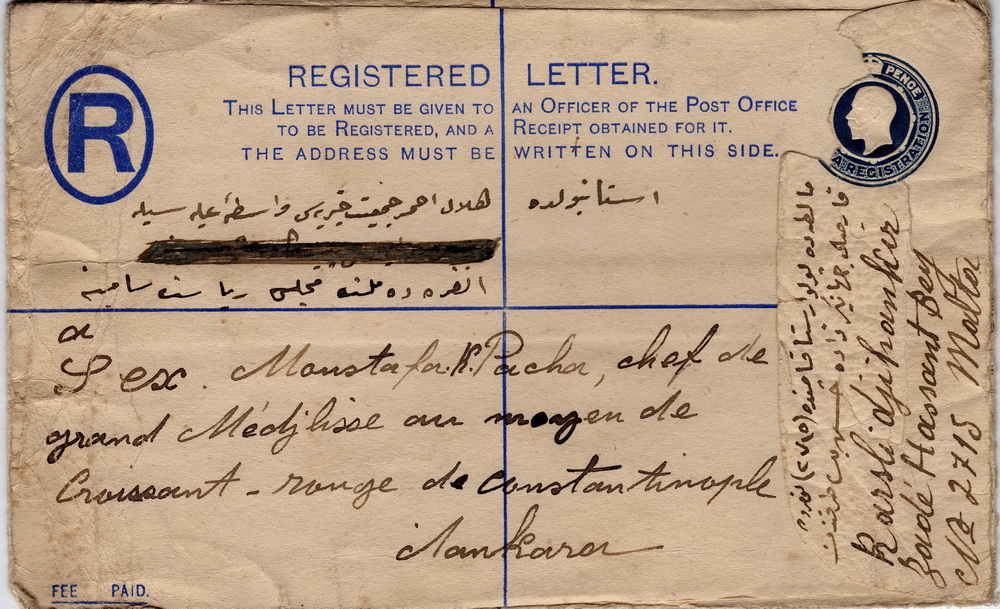 R
REGISTERED LETTER.
THIS LETTER MUST BE GIVEN TO AN OFFICER OF THE POST OFFICE
TO BE REGISTERED, AND A RECEIPT OBTAINED FOR IT.
THE ADDRESS MUST BE WRITTEN ON THIS SIDE.
PENCE
REGISTRATION
استانبولده
هلال احمر جمعيت خيريه سى واسطه عليه سيله
انقره ده ملت مجلسى رياست ساميه
a
S ex. Moustafa. K. Pacha, chef de
grand Médjlisse au moyen de
Croissant - rouge de constantinople
Aankara
Karsli djihankir
zadé Hassant Bey
No 2715 Malta
FEE PAID.